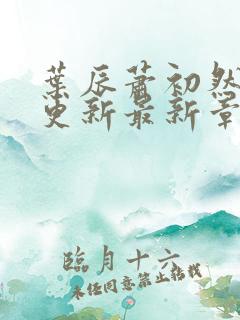 葉辰蕭初然
更新最新章
臨月十六
未经同意禁止转载